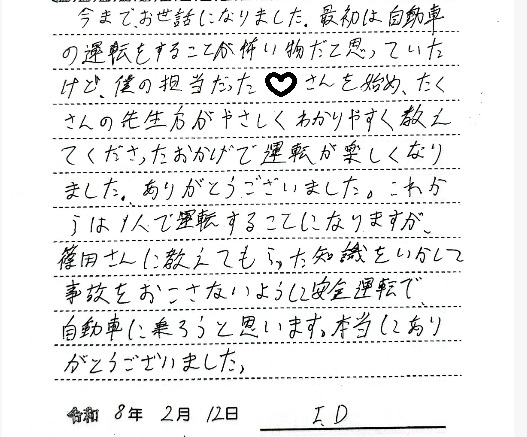 今までお世話になりました。最初は自動車
の運転をすることが怖い物だと思っていた
けど、僕の担当だった♥さんを始め、たく
さんの先生方がやさしくわかりやすく教え
てくださったおかげで運転が楽しくなり
ました。ありがとうございました。これか
らは1人で運転することになりますが、
篠田さんに教えてもらった知識をいかして
事故をおこさないようにして安全運転で、
自動車に乗ろうと思います。本当にあり
がとうございました。
令和 8年 2月 12日 I.D